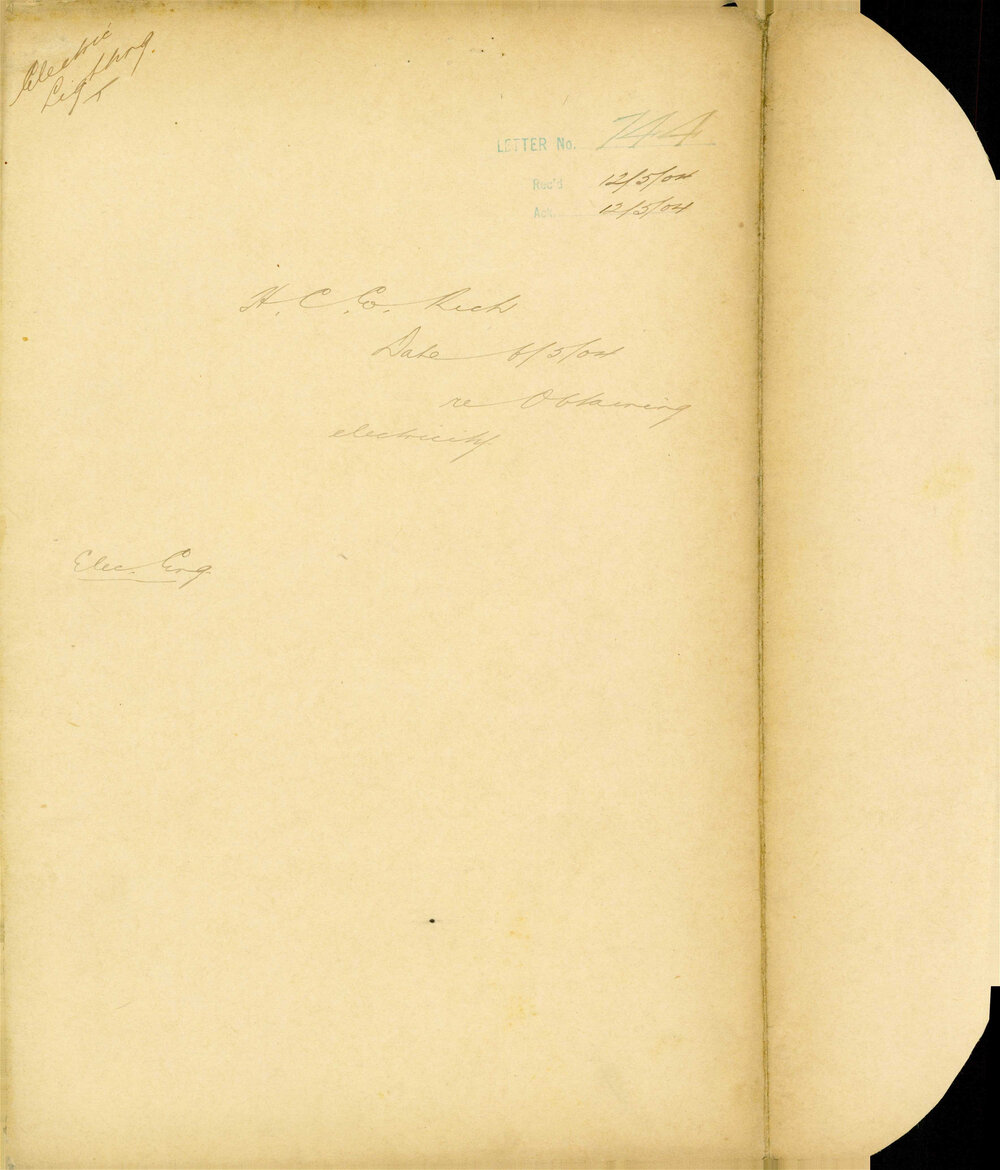 Electric
Lighting.
LETTER No. 744
Rec'd 12/5/04
Ack. 12/5/04
H. C. Co.
Date 6/5/04
re Obtaining
electricity.
Elec. Eng.